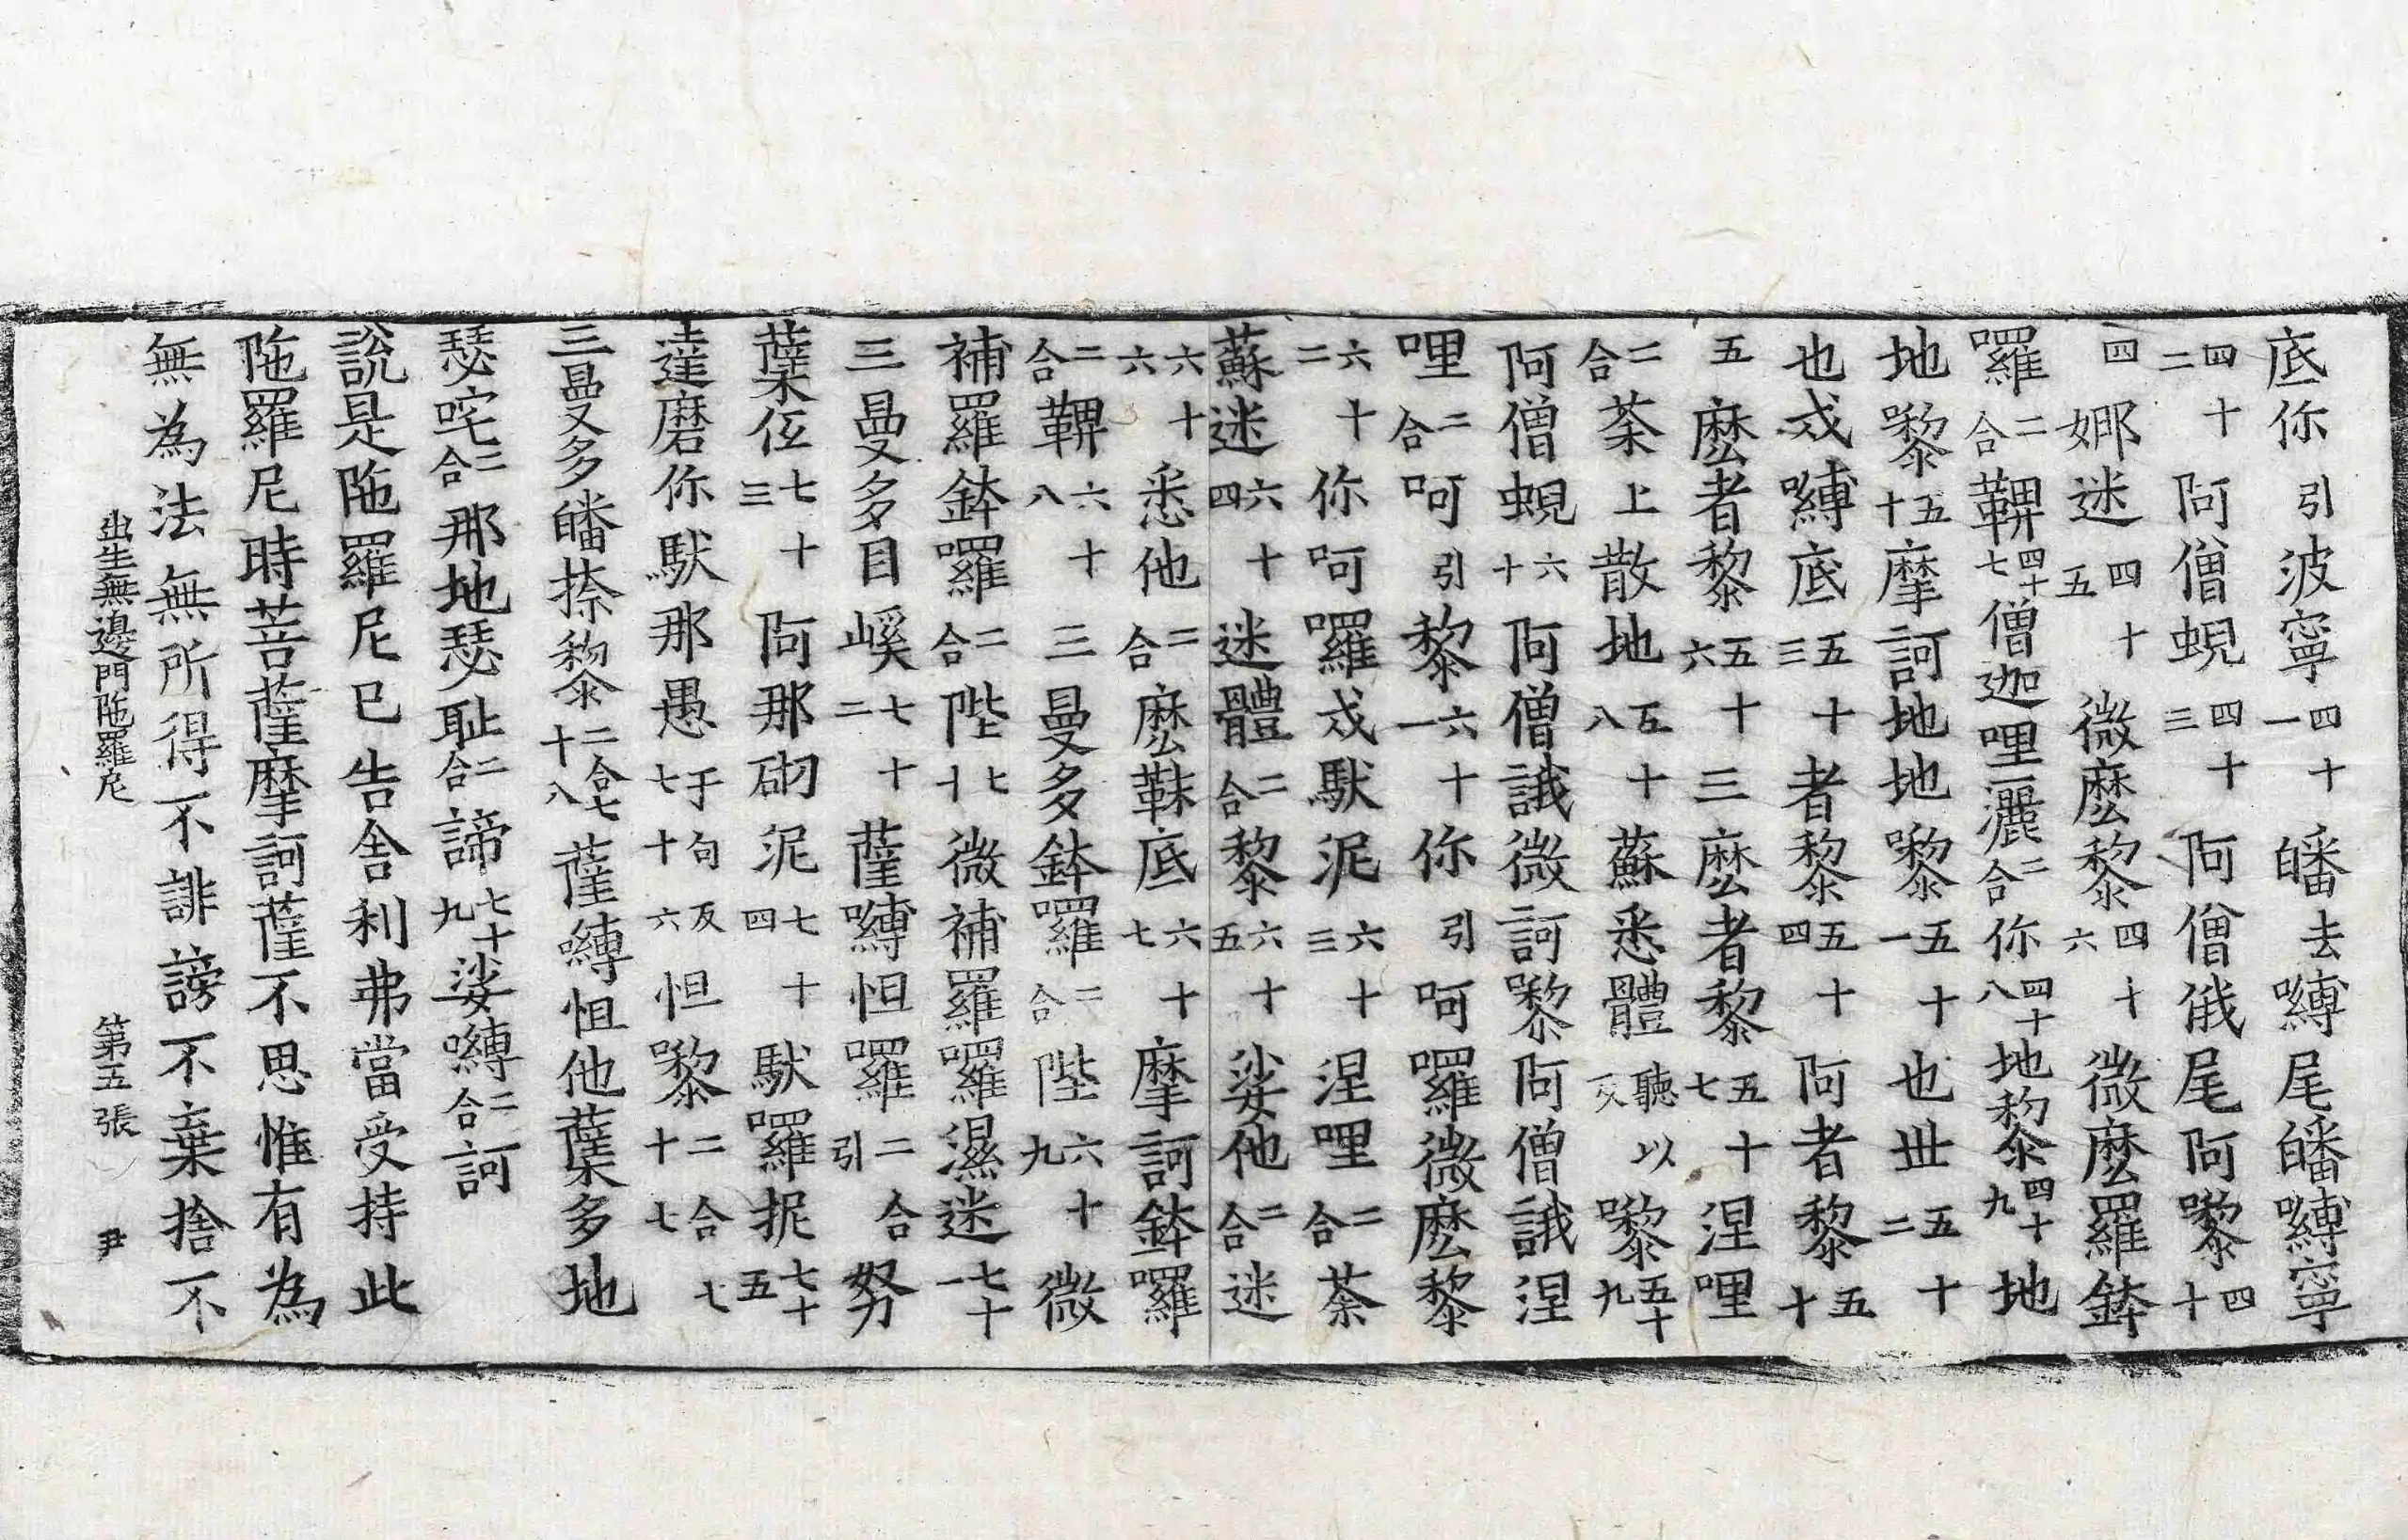 底你引波寧四十一皤去嚩尾皤嚩寧
四十二阿僧蜺四十三阿僧俄尾阿嚟四十
四娜迷四十五微麽黎四十六微麽羅鉢
囉二合鞞四十七僧迦哩灑二合你四十八地黎四十九地
地嚟五十摩訶地地嚟五十一也丗五十二
也戍嚩底五十三者黎五十四阿者黎五十
五麽者黎五十六三麽者黎五十七涅哩
二合荼上散地五十八蘇悉體聽以反嚟五十九
阿僧蜺六十阿僧誐微訶嚟阿僧誐涅
哩二合呵引黎六十一你引呵囉微麽黎
六十二你呵囉戍馱泥六十三涅哩二合荼
蘇迷六十四迷體二合黎六十五娑他二合迷
六十六悉他二合麽靺底六十七摩訶鉢囉
二合鞞六十八三曼多鉢囉二合陛六十九微
補羅鉢囉二合陛七十微補羅囉濕迷七十一
三曼多目㠋七十二薩嚩怛囉二合引努
蘗伭七十三阿那砌泥七十四馱羅抳七十五
達磨你馱那愚于句反七十六怛嚟二合七十七
三曼多皤捺黎二合七十八薩嚩怛他蘗多地
瑟咤二合那地瑟耻二合諦七十九娑嚩二合訶
說是陁羅尼已告舍利弗當受持此
陁羅尼時菩薩摩訶薩不思惟有為
無為法無所得不誹謗不棄捨不
出生無邊門陁羅尼　第五張　尹